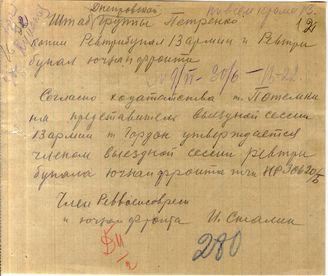 Днепровской
Штаб Группы Петренко
копии Ревтрибунал 13 армии и Ревтри
бунал южного фронта
Согласно ходатайства т. Потемки
на представителя выездной сессии
13 армии т Гордон утверждается
членом выездной сессии ревтри
бунала южного фронта тчк НР
Член Реввоенсовета
и южного фронта И. Сталин
280